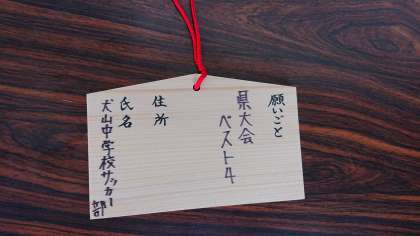 願いごと
県大会
ベスト4
住所
氏名
犬山中学校サッカー部